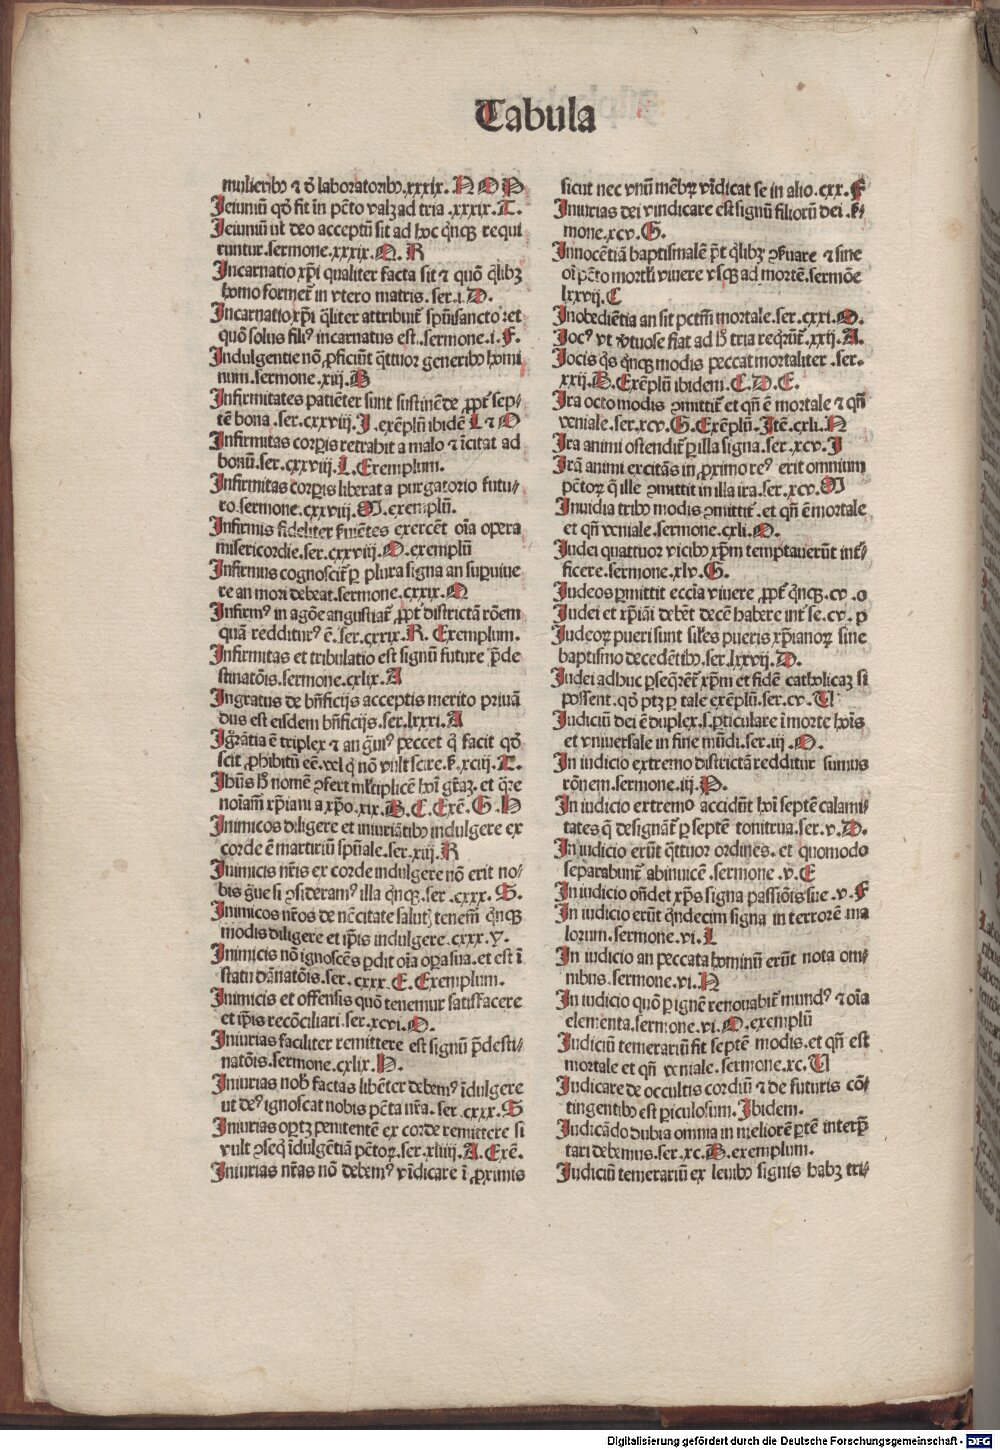 Tabula
mulieribꝰ ⁊ đ laboratoribꝰ.xxxix. N O P
Ieiuniū qđ fit in pctō valꝫ ad tria .xxxix.T.
Ieiuniū ut deo acceptū sit ad hoc qnꝗꝫ requi
runtur.sermone.xxxix.Q.R
Incarnatio xp̄i qualiter facta sit ⁊ quō qlibꝫ
homo formet̄ in vtero matris .ser.i.D.
Incarnatio xp̄i qliter attribuit̄ spūisancto et
quō solus filiꝰ incarnatus est..sermone.i.F.
Indulgentie nō ꝓficiūt qttuor generibꝰ homi
num.sermone.xiij.B
Infirmitates patiēter sunt sustinēde ꝓpt̄ sep-
tē bona .ser.cxxviij.I .exēplū ibidē L ⁊ O
Infirmitas corꝑis retrahit a malo ⁊ īcitat ad
bonū.ser.cxxviij.L.Exemplum.
Infirmitas corꝑis liberat a purgatorio futu-
ro.sermone.cxxviij.M.exemplū.
Infirmis fideliter ẜuiētes exercēt oīa opera
misericordie.ser.cxxviij.O.exemplū
Infirmus cognoscit̄ ꝑ plura signa an suꝑuiue
re an mori debeat.sermone.cxxix.Q
Infirmꝰ in agōe angustiat̄ ꝓpt̄ districtā rōem
quā redditurꝰ ē.ser.cxxix.R. Exemplum.
Infirmitas et tribulatio est signū future p̄de
stinatōis.sermone.cxlix.A
Ingratus de bn̄ficijs acceptis merito priuā
dus est eisdem bn̄ficijs.ser.lxxxi.A
Igr̄atia ē triplex ⁊ an grauiꝰ peccet q̄ facit qđ
scit ꝓhibitū eē.vel q̄ nō vult scire.ẜ.xciij.T.
Ihūs hꝫ nomē ↄfert mltiplicē hoī gr̄az.et qre
noīam̄ xp̄iani a xp̄o.xix.B.C.Exē.G.H
Inimicos diligere et iniuriātibꝰ indulgere ex
corde ē martiriū spūale.ser.xiij.R
Inimicis nr̄is ex corde indulgere nō erit no-
bis graue si ↄsideramꝰ illa qnꝗꝫ.ser .cxxx. S.
Inimicos nr̄os de nc̄citate salutꝭ tenem̄ qnꝗꝫ
modis diligere et ip̄is indulgere.cxxx.V.
Inimicis nō ignoscēs ꝑdit oīa oꝑa sua.et est ī
statu dānatōis.ser. cxxx.E.Exemplum.
Inimicis et offensis quō tenemur satisfacere
et ip̄is recōciliari.ser.xcvi.O.
Iniurias faciliter remittere est signū p̄desti-
natōis.sermone.cxlix.N.
Iniurias nob̄ factas libēter debemꝰ īdulgere
ut deꝰ ignoscat nobis pctā nr̄a. ser .cxxx.S
Iniurias oportꝫ penitentē ex corde remittere si
vult ↄseq̄ īdulgētiā pctōꝝ.ser.xliiij.A.Exē.
Iniurias nr̄as nō debemꝰ vīdicare ī ꝓximis
sicut nec vnū mēbꝝ vīdicat se in alio.cxx.F
Iniurias dei vindicare est signū filiorū dei .ẜ-
mone.xcv.G.
Innocētiā baptismalē pt̄ qlibꝫ ↄẜuare ⁊ sine
oī pctō mortli viuere vsꝗꝫ ad mortē.sermōe
lxxvij.C
Inobediētia an sit pctm̄ mortale.ser.cxxi.O.
Iocꝰ vt v̄tuose fiat ad hꝫ tria reqrūt̄.xxij.A.
Iocis qs qnꝗꝫ modis peccat mortaliter .ser.
xxij.B.Exēplū ibidem.C.D.E.
Ira octo modis ↄmittit̄ et qn̄ ē mortale ⁊ qn̄
veniale.ser.xcv.G.Exēplū.Itē.cxli.N
Ira animi ostendit̄ ꝑ illa signa.ser.xcv.I
Irā animi excitās in ꝓximo reꝰ erit omnium
pctōꝝ q̄ ille ↄmittit in illa ira.ser.xcv.M
Inuidia tribꝰ modis ↄmittit̄.et qn̄ ē mortale
et qn̄ veniale.sermone.cxli.O.
Iudei quattuor vicibꝰ xp̄m temptauerūt int̄-
ficere.sermone.xlv.G.
Iudeos ꝑmittit eccīa viuere ꝓpt̄ qnꝗꝫ.cv .o
Iudei et xp̄iāi debēt decē habere int̄ se.cv.p
Iudeoꝝ pueri sunt siles pueris xp̄ianoꝝ sine
baptismo decedētibꝰ.ser.lxxvij.D.
Iudei adhuc ꝑseqrēt xp̄m et fidē catholicaꝫ si
possent.qđ ptꝫ ꝑ tale exēplū.ser.cv.U
Iudiciū dei ē duplex.s.ꝑticulare ī morte hoīs
et vniuersale in fine mūdi.ser.iij.O.
In iudicio extremo districtā redditur sumus
rōnem.sermone.iij.P.
In iudicio extremo accidūt hoī septē calami-
tates q̄ designāt̄ ꝑ septē tonitrua.ser.v.D.
In iudicio erūt qttuor ordines.et quomodo
separabunt̄ abinuicē .sermone .v.E
In iudicio on̄det xp̄s signa passiōis sue .v.F
In iudicio erūt qndecim signa in terrorē ma
lorum.sermone.vi.L
In iudicio an peccata hominū erūt nota om-
nibus.sermone.vi.N
In iudicio quō ꝑ ignē renouabit̄ mundꝰ ⁊ oīa
elementa.sermone.vi.O.exemplū
Iudiciū temerariū fit septē modis.et qn̄ est
mortale et qn̄ veniale.sermone.xc.U
Iudicare de occultis cordiū ⁊ de futuris cō-
tingentibꝰ est ꝑiculosum.Ibidem.
Iudicādo dubia omnia in meliorē ꝑtē interp̄
tari debemus.ser.xc.B.exemplum.
Iudiciū temerariū ex leuibꝰ signis habꝫ tri-
Digitalisierung gefördert durch die Deutsche Forschungsgemeinschaft - DFG